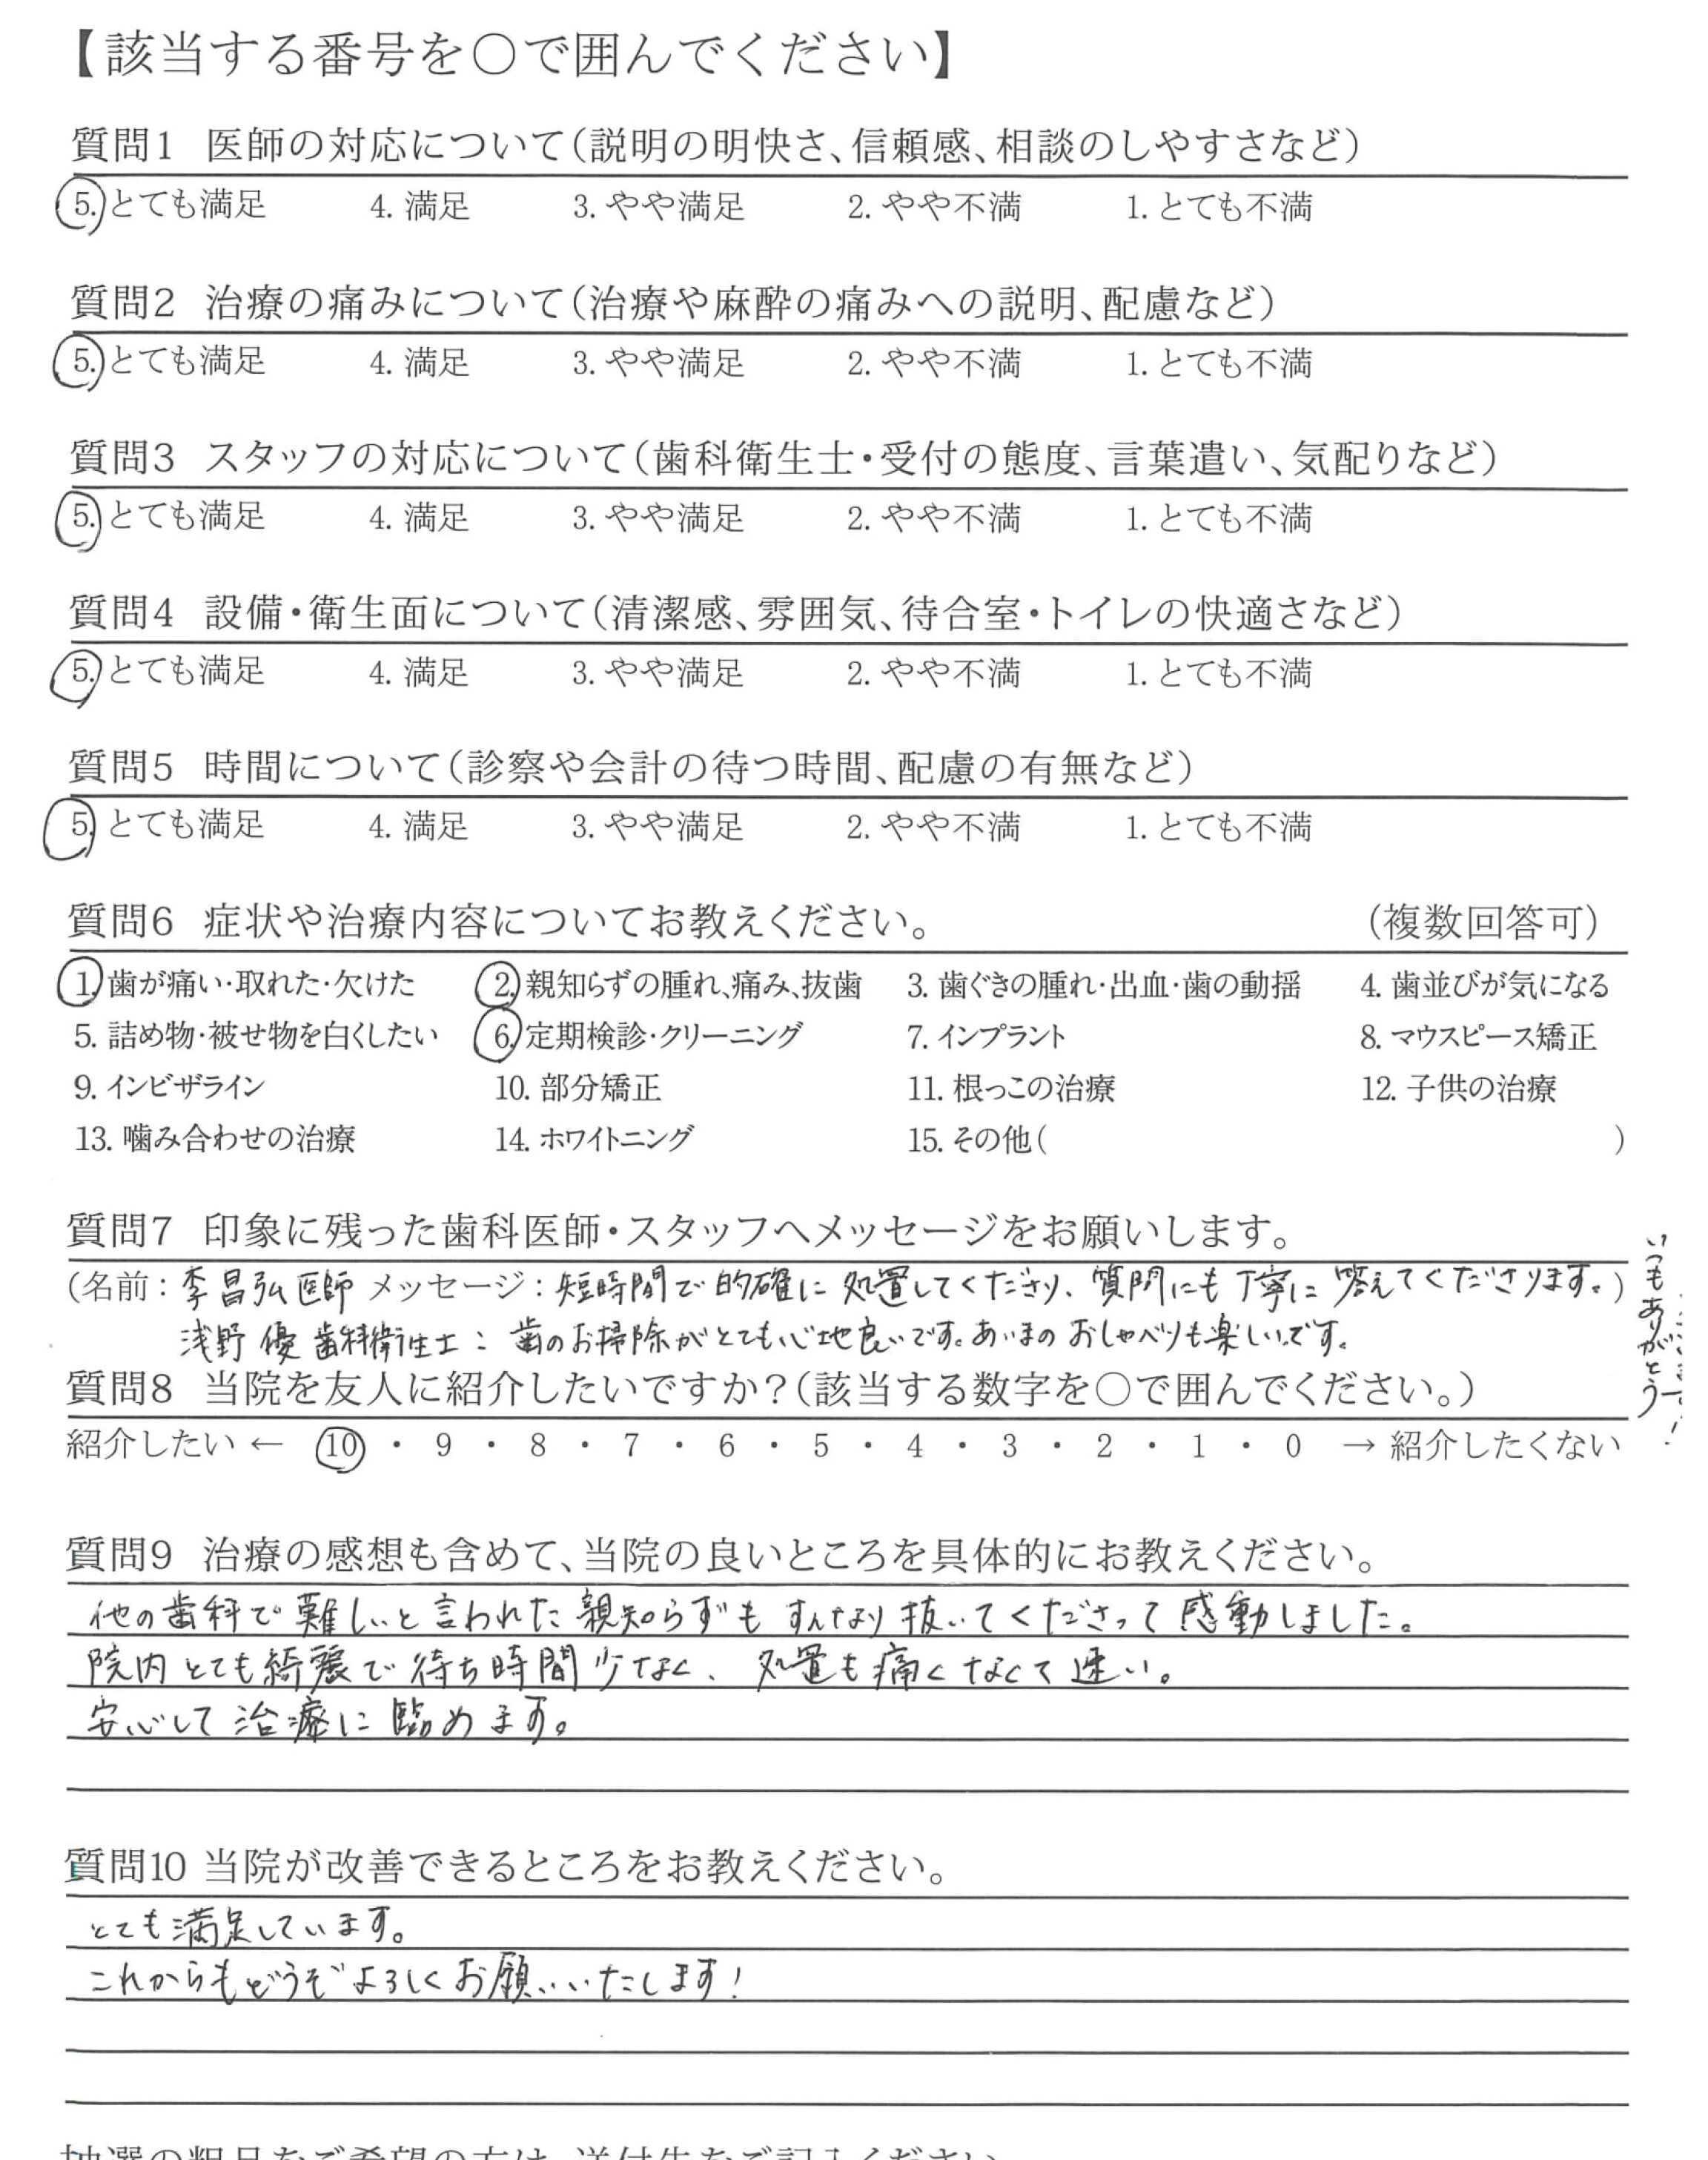 【該当する番号を〇で囲んでください】
質問1 医師の対応について（説明の明快さ、信頼感、相談のしやすさなど）
5. とても満足 4. 満足 3. やや満足 2. やや不満 1. とても不満
質問2 治療の痛みについて（治療や麻酔の痛みへの説明、配慮など）
5. とても満足 4. 満足 3. やや満足 2. やや不満 1. とても不満
質問3 スタッフの対応について（歯科衛生士・受付の態度、言葉遣い、気配りなど）
5. とても満足 4. 満足 3. やや満足 2. やや不満 1. とても不満
質問4 設備・衛生面について（清潔感、雰囲気、待合室・トイレの快適さなど）
5. とても満足 4. 満足 3. やや満足 2. やや不満 1. とても不満
質問5 時間について（診察や会計の待つ時間、配慮の有無など）
5. とても満足 4. 満足 3. やや満足 2. やや不満 1. とても不満
質問6 症状や治療内容についてお教えください。 （複数回答可）
1. 歯が痛い・取れた・欠けた 2. 親知らずの腫れ、痛み、抜歯 3. 歯ぐきの腫れ・出血・歯の動揺 4. 歯並びが気になる
5. 詰め物・被せ物を白くしたい 6. 定期検診・クリーニング 7. インプラント 8. マウスピース矯正
9. インビザライン 10. 部分矯正 11. 根っこの治療 12. 子供の治療
13. 噛み合わせの治療 14. ホワイトニング 15. その他（ ）
質問7 印象に残った歯科医師・スタッフへメッセージをお願いします。
（名前：李昌弘医師 メッセージ：短時間で的確に処置してくださり、質問にも丁寧に答えてくださります。）
浅野 優 歯科衛生士：歯のお掃除がとても心地良いです。あいまのおしゃべりも楽しいです。
いつもありがとう
質問8 当院を友人に紹介したいですか？（該当する数字を〇で囲んでください。）
紹介したい ← 10 ・ 9 ・ 8 ・ 7 ・ 6 ・ 5 ・ 4 ・ 3 ・ 2 ・ 1 ・ 0 → 紹介したくない
質問9 治療の感想も含めて、当院の良いところを具体的にお教えください。
他の歯科で難しいと言われた親知らずもすんなり抜いてくださって感動しました。
院内とても綺麗で待ち時間少なく、処置も痛くなくて速い。
安心して治療に臨めます。
質問10 当院が改善できるところをお教えください。
とても満足しています。
これからもどうぞよろしくお願いいたします！